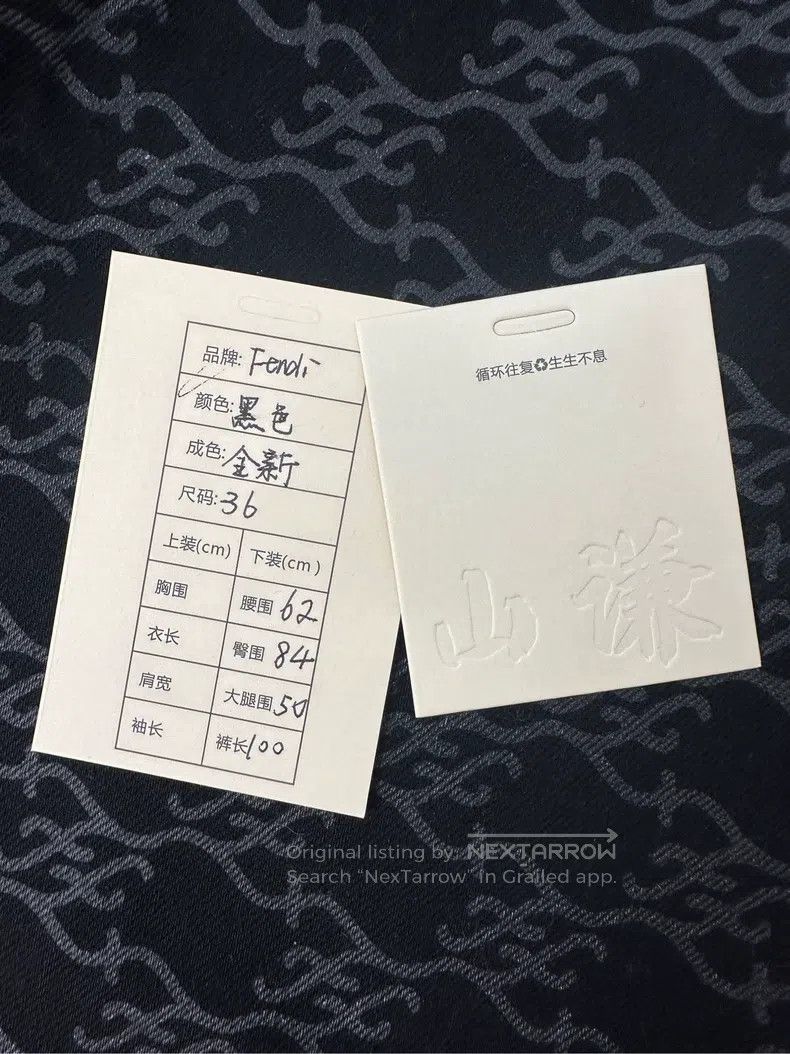 品牌: Fendi
颜色: 黑色
成色: 全新
尺码: 36
上装(cm) 下装(cm)
胸围 腰围 62
衣长 臀围 84
肩宽 大腿围 50
袖长 裤长 100
循环往复♻生生不息
山 谦
Original listing by: NEXTARROW
Search “NexTarrow” in Grailed app.